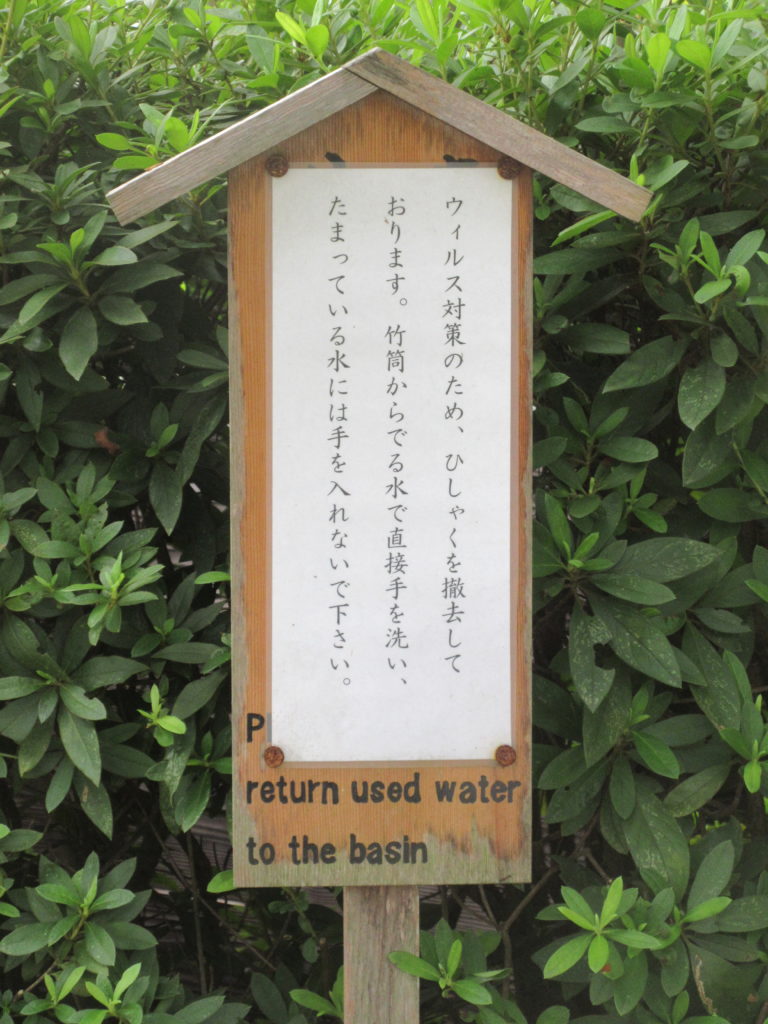 ウィルス対策のため、ひしゃくを撤去して
おります。竹筒からでる水で直接手を洗い、
たまっている水には手を入れないで下さい。
return used water
to the basin